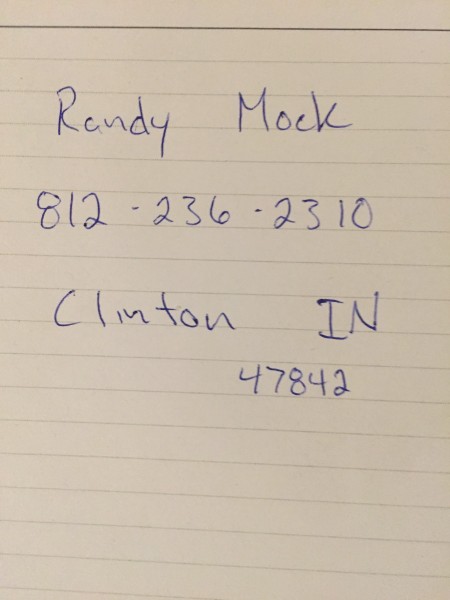 Randy Mock
812-236-2310
Clinton IN
47842